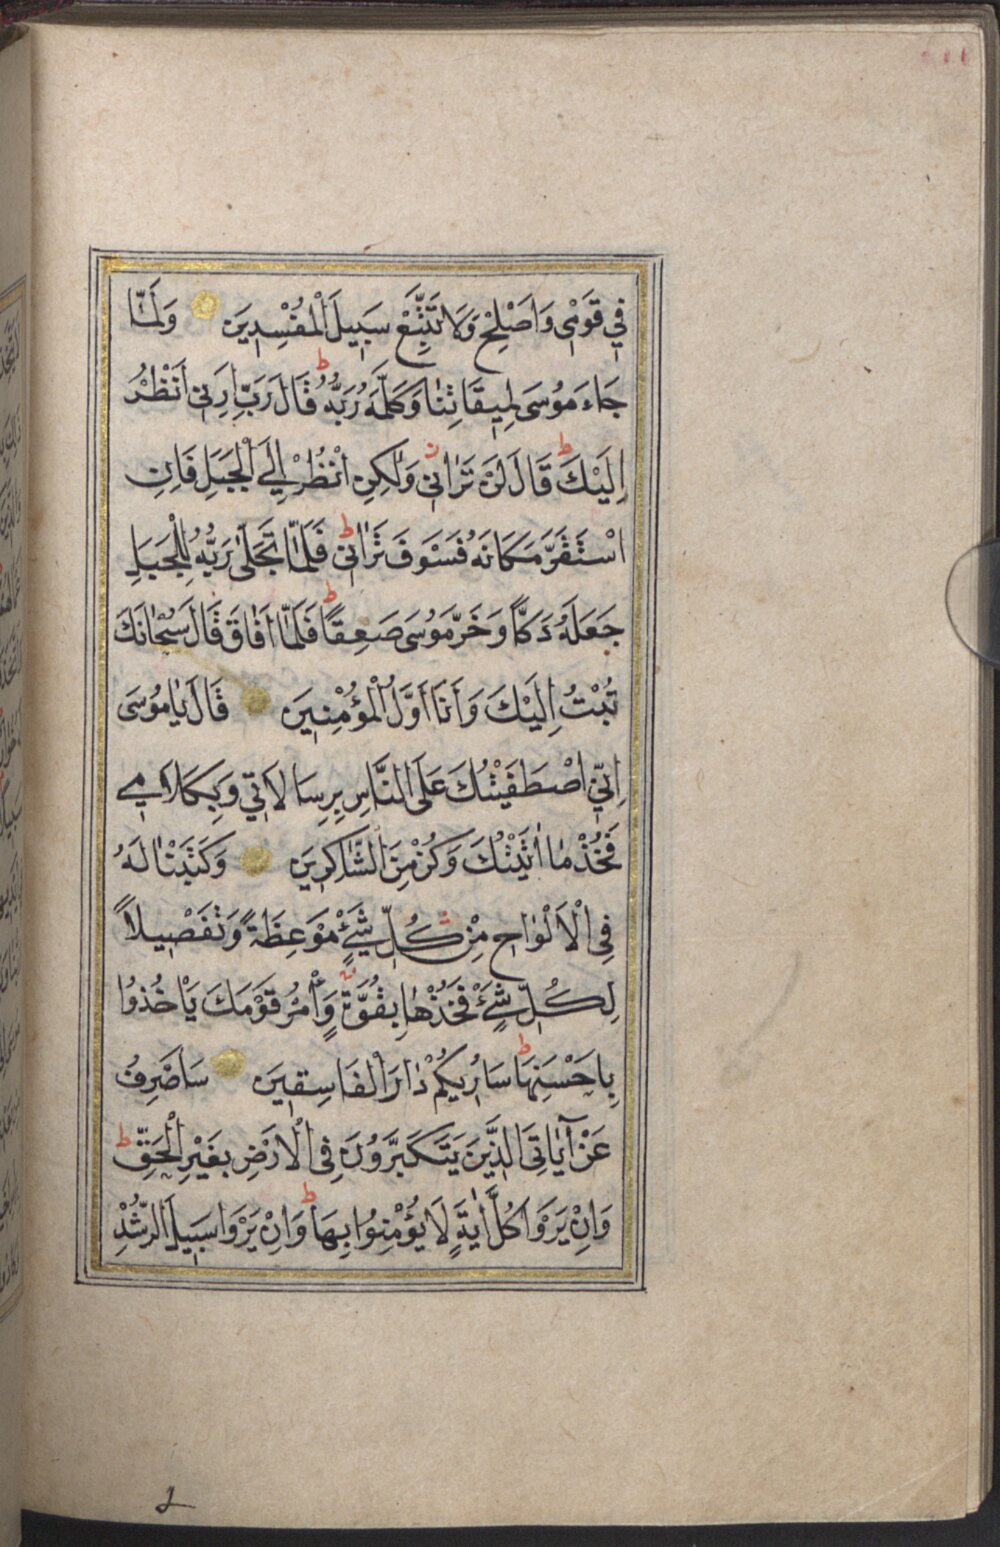 فِي قَوْمِي وَاَصْلِحْ وَلَا تَتَّبِعْ سَبِيلَ الْمُفْسِدِينَ وَلَمَّا
جَاءَ مُوسَى لِمِيقَاتِنَا وَكَلَّمَهُ رَبُّهُ قَالَ رَبِّ اَرِنِى اَنْظُرْ
اِلَيْكَ قَالَ لَنْ تَرَانِى وَلٰكِنِ انْظُرْ اِلَي الْجَبَلِ فَاِنِ
اسْتَقَرَّ مَكَانَهُ فَسَوْفَ تَرَانِى فَلَمَّا تَجَلّٰى رَبُّهُ لِلْجَبَلِ
جَعَلَهُ دَكًّا وَخَرَّ مُوسَى صَعِقًا فَلَمَّا اَفَاقَ قَالَ سُبْحَانَكَ
تُبْتُ اِلَيْكَ وَأَنَا أَوَّلُ الْمُؤْمِنِينَ قَالَ يَامُوسَى
اِنِّي اصْطَفَيْتُكَ عَلَى النَّاسِ بِرِسَالَاتِي وَبِكَلَامِي
فَخُذْ مَا اٰتَيْتُكَ وَكُنْ مِنَ الشَّاكِرِينَ وَكَتَبْنَا لَهُ
فِي الْاَلْوَاحِ مِنْ كُلِّ شَيْءٍ مَوْعِظَةً وَتَفْصِيلاً
لِكُلِّ شَيْءٍ فَخُذْهَا بِقُوَّةٍ وَأْمُرْ قَوْمَكَ يَأْخُذُوا
بِاَحْسَنِهَا سَاُرِيكُمْ دَارَ الْفَاسِقِينَ سَاَصْرِفُ
عَنْ آيَاتِىَ الَّذِينَ يَتَكَبَّرُونَ فِى الْاَرْضِ بِغَيْرِ الْحَقِّ
وَاِنْ يَرَوْا كُلَّ اٰيَةٍ لَا يُؤْمِنُوا بِهَا وَاِنْ يَرَوْا سَبِيلَ الرُّشْدِ